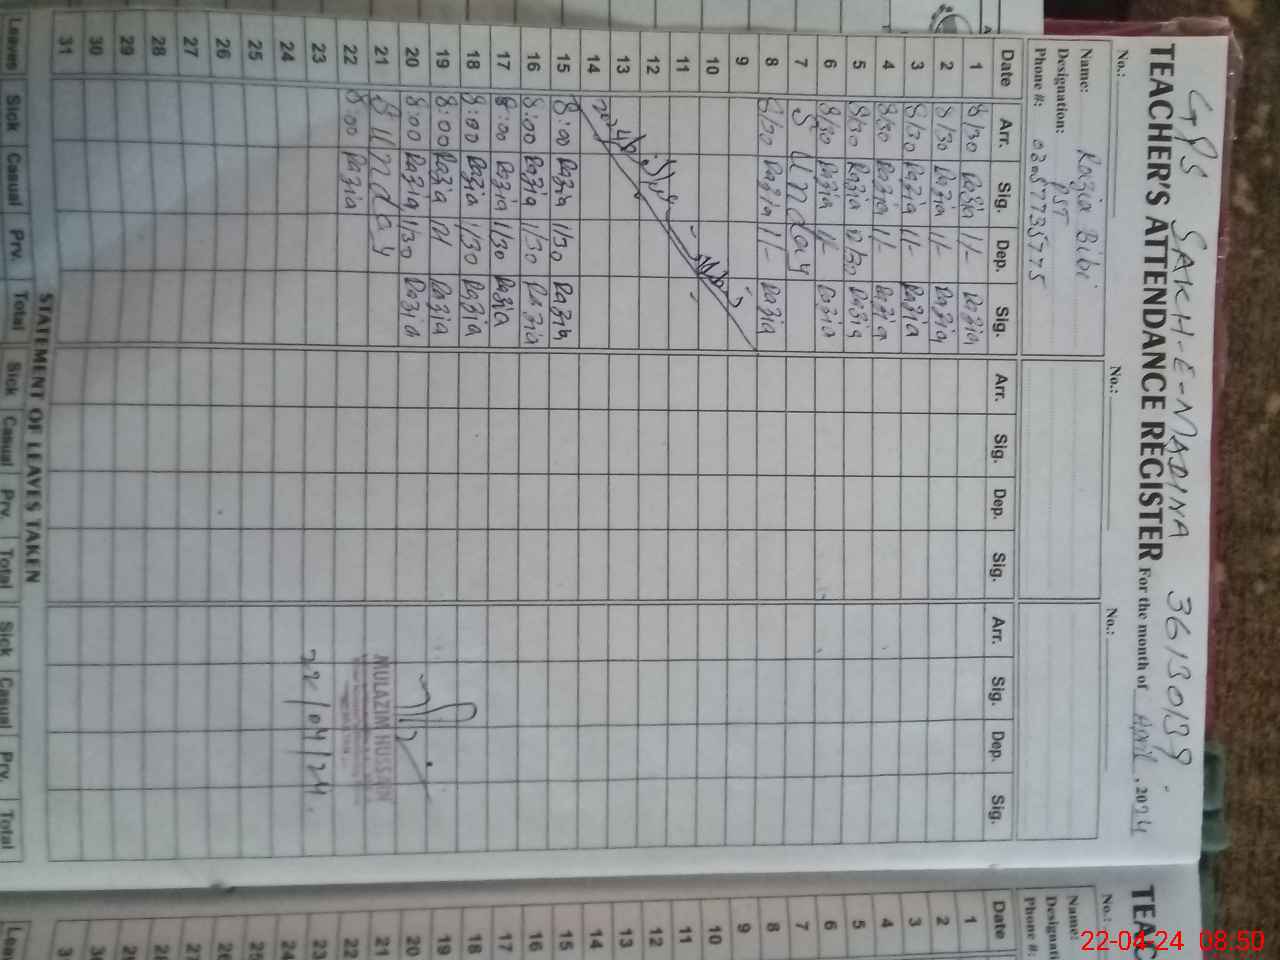 GPS SAKH-E-MADINA 36130139
TEACHER'S ATTENDANCE REGISTER For the month of April, 2024
No.: No.: No.:
Name: Razia Bibi
Designation: PST
Phone #: 03057735775
Date Arr. Sig. Dep. Sig. Arr. Sig. Dep. Sig. Arr. Sig. Dep. Sig.
1 8/30 Razia 1/- Razia
2 8/30 Razia 1/- Razia
3 8/30 Razia 1/- Razia
4 8/30 Razia 1/- Razia
5 8/30 Razia Razia
6 8/30 Razia 1/- Razia
7 Sunday
8 8/30 Razia 1/- Razia
9
10
11
12
13
14
15 8:00 Razia 1/30 Razia
16 8:00 Razia 1/30 Razia
17 8:00 Razia 1/30 Razia
18 8:00 Razia 1/30 Razia
19 8:00 Razia Razia
20 8:00 Razia 1/30 Razia
21 Sunday
22 8:00 Razia
23
24
25
26
27
28
29
30
31
MULAZIM HUSSAIN
22/04/24
STATEMENT OF LEAVES TAKEN
Leaves Sick Casual Prv. Total Sick Casual Prv. Total Sick Casual Prv. Total
TEAC
No.:
Name:
Designati
Phone #:
Date
1
2
3
4
5
6
7
8
9
10
11
12
13
14
15
16
17
18
19
20
21
22
23
24
25
26
27
28
29
30
3
22-04-24 08:50